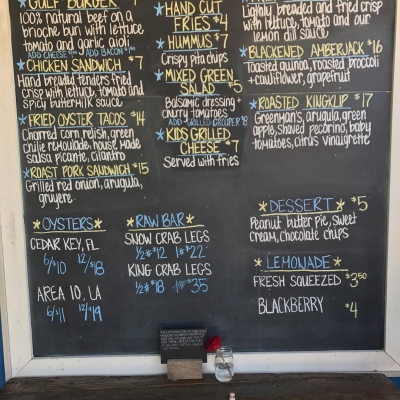 GULF BURGER $7
100% natural beef on a
brioche bun with lettuce
tomato and garlic aioli
ADD CHEESE ADD BACON
CHICKEN SANDWICH $7
Hand breaded tenders fried
crisp with lettuce, tomato and
spicy buttermilk sauce
FRIED OYSTER TACOS $14
Charred corn relish, green
chilie remoulade, house made
salsa picante, cilantro
ROAST PORK SANDWICH $15
Grilled red onion, arugula,
gruyere
HAND CUT
FRIES $4
HUMMUS $7
Crispy pita chips
MIXED GREEN
SALAD $5
Balsamic dressing +
cherry tomatoes
ADD GRILLED GROUPER $8
KIDS GRILLED
CHEESE $7
Served with fries
Lightly breaded and fried crisp
with lettuce, tomato and our
lemon dill sauce
BLACKENED AMBERJACK $16
Toasted quinoa, roasted broccoli
+ cauliflower, grapefruit
ROASTED KINGKLIP $17
Greenman's arugula, green
apple, shaved pecorino, baby
tomatoes, citrus vinaigrette
OYSTERS
CEDAR KEY, FL
6/$10 12/$18
AREA 10, LA
6/$11 12/$19
RAW BAR
SNOW CRAB LEGS
1/2# $12 1# $22
KING CRAB LEGS
1/2# $18 1# $35
DESSERT $5
Peanut butter pie, sweet
cream, chocolate chips
LEMONADE
FRESH SQUEEZED $3.50
BLACKBERRY $4